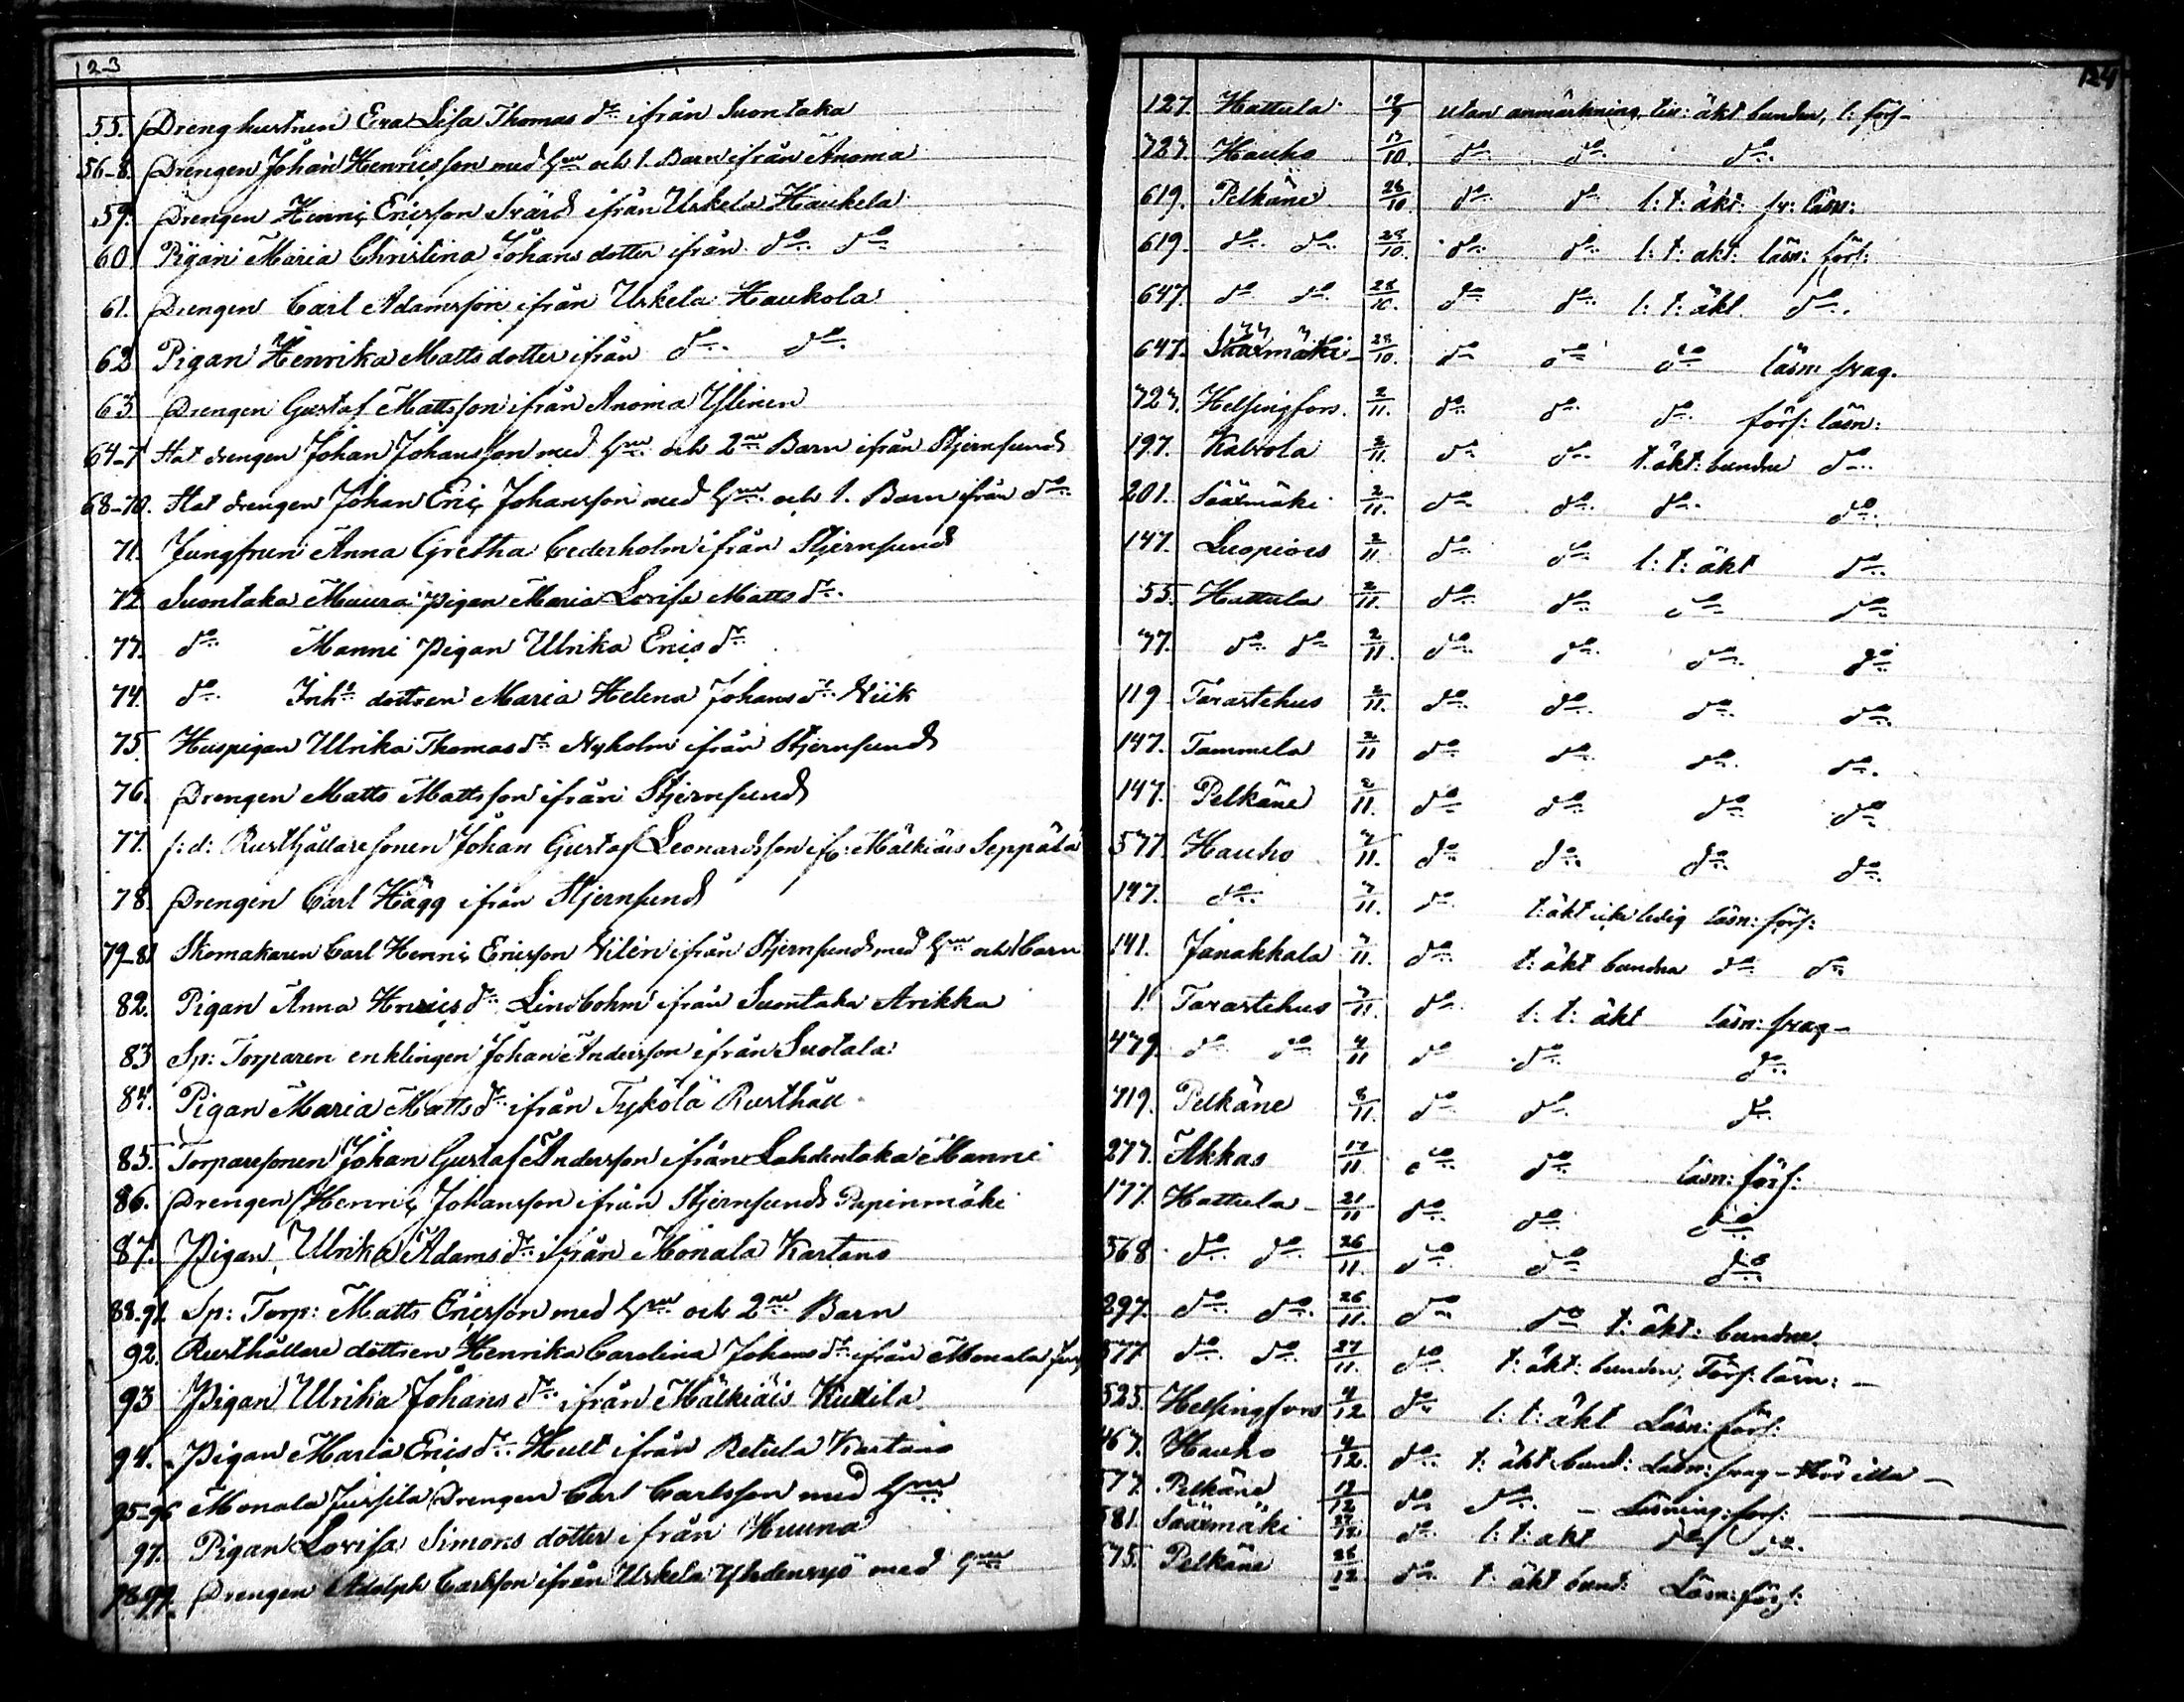 123
55. Drenghustrun Eva Lisa Thomas dr ifrån Suontaka
56-8. Drengen Johan Henricsson med Hru och 1. Barn ifrån Anoma
59. Drengen Henric Ericsson Svärd ifrån Uskela Haukela
60. Pigan Maria Christina Johans dotter ifrån do do
61. Drengen Carl Adamsson ifrån Uskela Haukola
62 Pigan Henrika Matts dotter ifrån do do
63. Drengen Gustaf Mattsson ifrån Anoma Yllinen
64-7 Stat drengen Johan Johansson med Hru och 2ne Barn ifrån Stjernsund
68-70. Stat drengen Johan Eric Johansson med Hru och 1. Barn ifrån do
71. Jungfrun Anna Gretha Cederholm ifrån Stjernsund
72 Suontaka Muura Pigan Maria Lovisa Matts dr
77. do Manni Pigan Ulrika Erics dr
74. do Inhs dottren Maria Helena Johans dr Wiik
75. Huspigan Ulrika Thomas dr Nyholm ifrån Stjernsund
76. Drengen Matts Mattsson ifrån Stjernsund
77. f:d: Rusthållare sonen Johan Gustaf Leonardsson ifr: Mälkiäis Seppälä
78. Drengen Carl Hägg ifrån Stjernsund
79-81 Skomakaren Carl Henric Ericsson Wilén ifrån Stjernsund med Hru och 1 barn
82. Pigan Anna Henrics dr Lindbohm ifrån Suontaka Arikka
83 Sp: Torparen enklingen Johan Andersson ifrån Suotala
84. Pigan Maria Matts dr ifrån Tykölä Rusthåll
85. Torparesonen Johan Gustaf Andersson ifrån Lahdentaka Manni
86. Drengen Henric Johansson ifrån Stjernsund Papinmäki
87. Pigan Ulrika Adams dr ifrån Monala Kartano
88-91 Sp: Torp: Matts Ericsson med Hru och 2ne Barn
92. Rusthållare dottren Henrika Carolina Johans dr ifrån Monala
93 Pigan Ulrika Johans dr ifrån Mälkiäis Kutila
94. Pigan Maria Erics dr Hult ifrån Retula Kartano
95-96 Monala Jussila Drengen Carl Carlsson med Hru
97. Pigan Lovisa Simons dotter ifrån Huuna
98-99. Drengen Adolph Carlsson ifrån Uskela Yhdensyö med Hru
124
127. Hattula 19/9 utan anmärkning, till: äkt bunden, l: förs-
727. Hauho 17/10. do do do
619. Pelkäne 28/10. do do l: t: äkt: sv: läsn:
619. do do 28/10. do do l: t: äkt: läsn: förs:
647. do do 28/10. do do l: t: äkt do
647. Sääxmäki 28/10. do do do läsn: svag.
727. Helsingfors. 2/11. do do do förs: läsn:
197. Kalvola 2/11. do do t: äkt: bundne do
201. Sääxmäki 2/11. do do do do
147. Luopiois 2/11 do do l: t: äkt do
55. Hattula 2/11. do do do do
77. do do 2/11. do do do do
119. Tavastehus 2/11. do do do do
147. Tammela 2/11 do do do do
147. Pelkäne 2/11. do do do do
577. Hauho 7/11. do do do do
147. do 7/11. do t: äkt icke ledig läsn: förs:
141. Janakkala 7/11. do t: äkt bundna do do
1. Tavastehus 7/11. do l: t: äkt läsn: svag-
479. do do 4/11 do do do
719. Pelkäne 8/11. do do do
277. Akkas 17/11 do do läsn: förs:
177. Hattula 21/11 do do do
568. do do 26/11. do do do
297. do do 26/11. do do t: äkt: bundne.
577 do do 27/11. do t: äkt: bunden, förs: läsn:
525. Helsingfors 4/12 do l: t: äkt Läsn: förs:
467. Hauho 4/12. do t: äkt bund: Läsn: svag -
577. Pelkäne 12/12 do do - Läsning: förs:
581. Sääxmäki 27/12. do l: t: äkt do do
675. Pelkäne 28/12 do t: äkt bund: Läsn: förs: